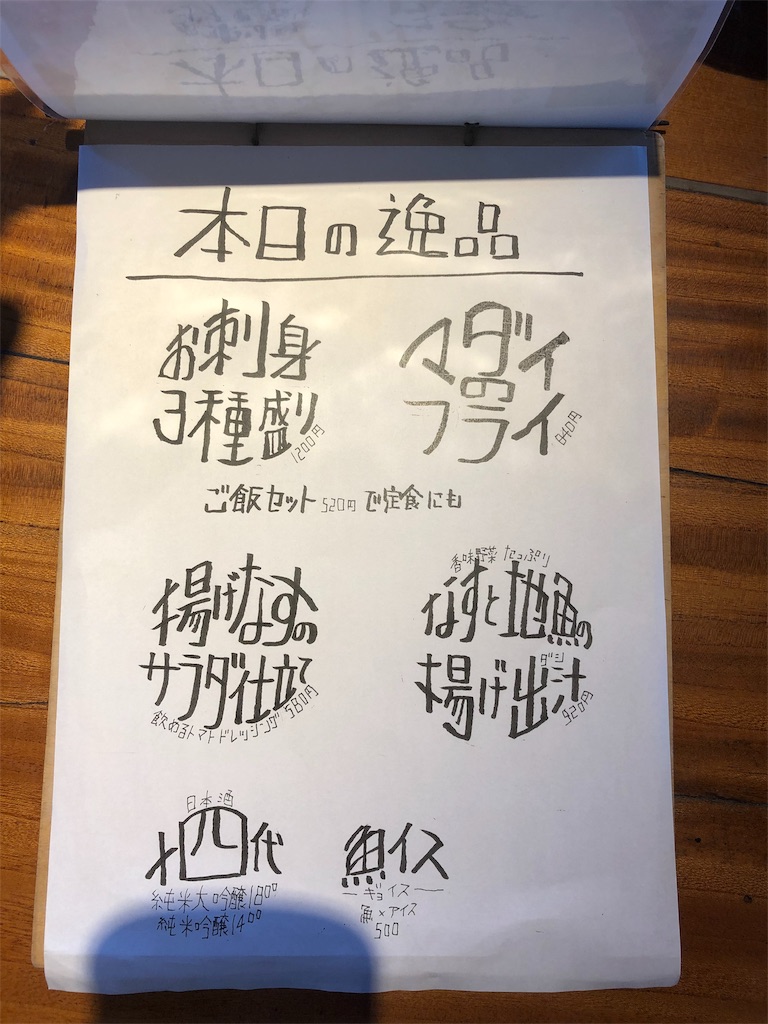 本日の逸品
お刺身
3種盛り
1200円
マダイ
の
フライ
840円
ご飯セット 520円 で定食にも
揚げなすの
サラダ仕立て
飲めるトマトドレッシング 580円
香味野菜 たっぷり
なすと地魚の
揚げ出汁
ダシ
920円
日本酒
十四代
純米大吟醸 1800
純米吟醸 1400
魚イス
ーギョイスー
魚×アイス
500